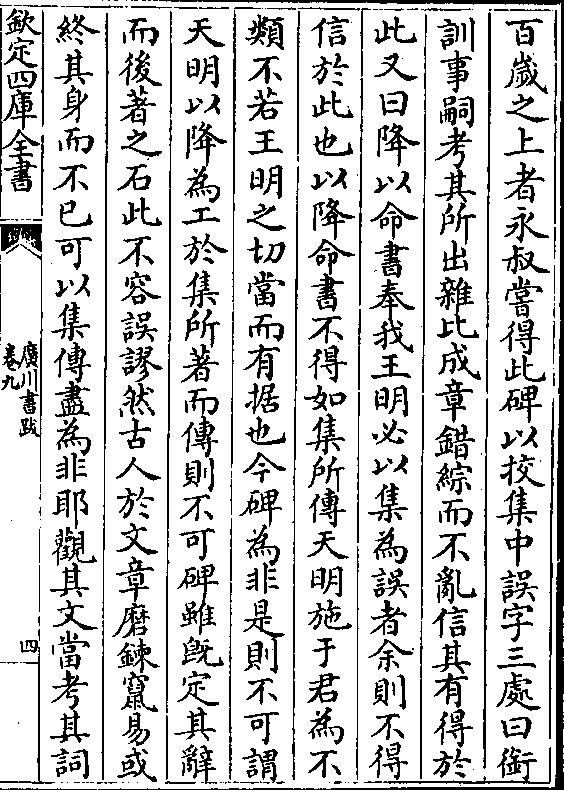 百歲之上者永叔嘗得此碑以挍集中誤字三處曰銜
訓事嗣考其所出雜比成章錯綜而不亂信其有得於
此又曰降以命書奉我王明必以集為誤者余則不得
信於此也以降命書不得如集所傳天明施于君為不
類不若王明之切當而有据也今碑為非是則不可謂
天明以降為工於集所著而傳則不可碑雖既定其辭
而後著之石此不容誤謬然古人於文章磨鍊竄易或
終其身而不已可以集傳盡為非耶觀其文當考其詞
欽定四庫全書
廣川書跋
卷九
四